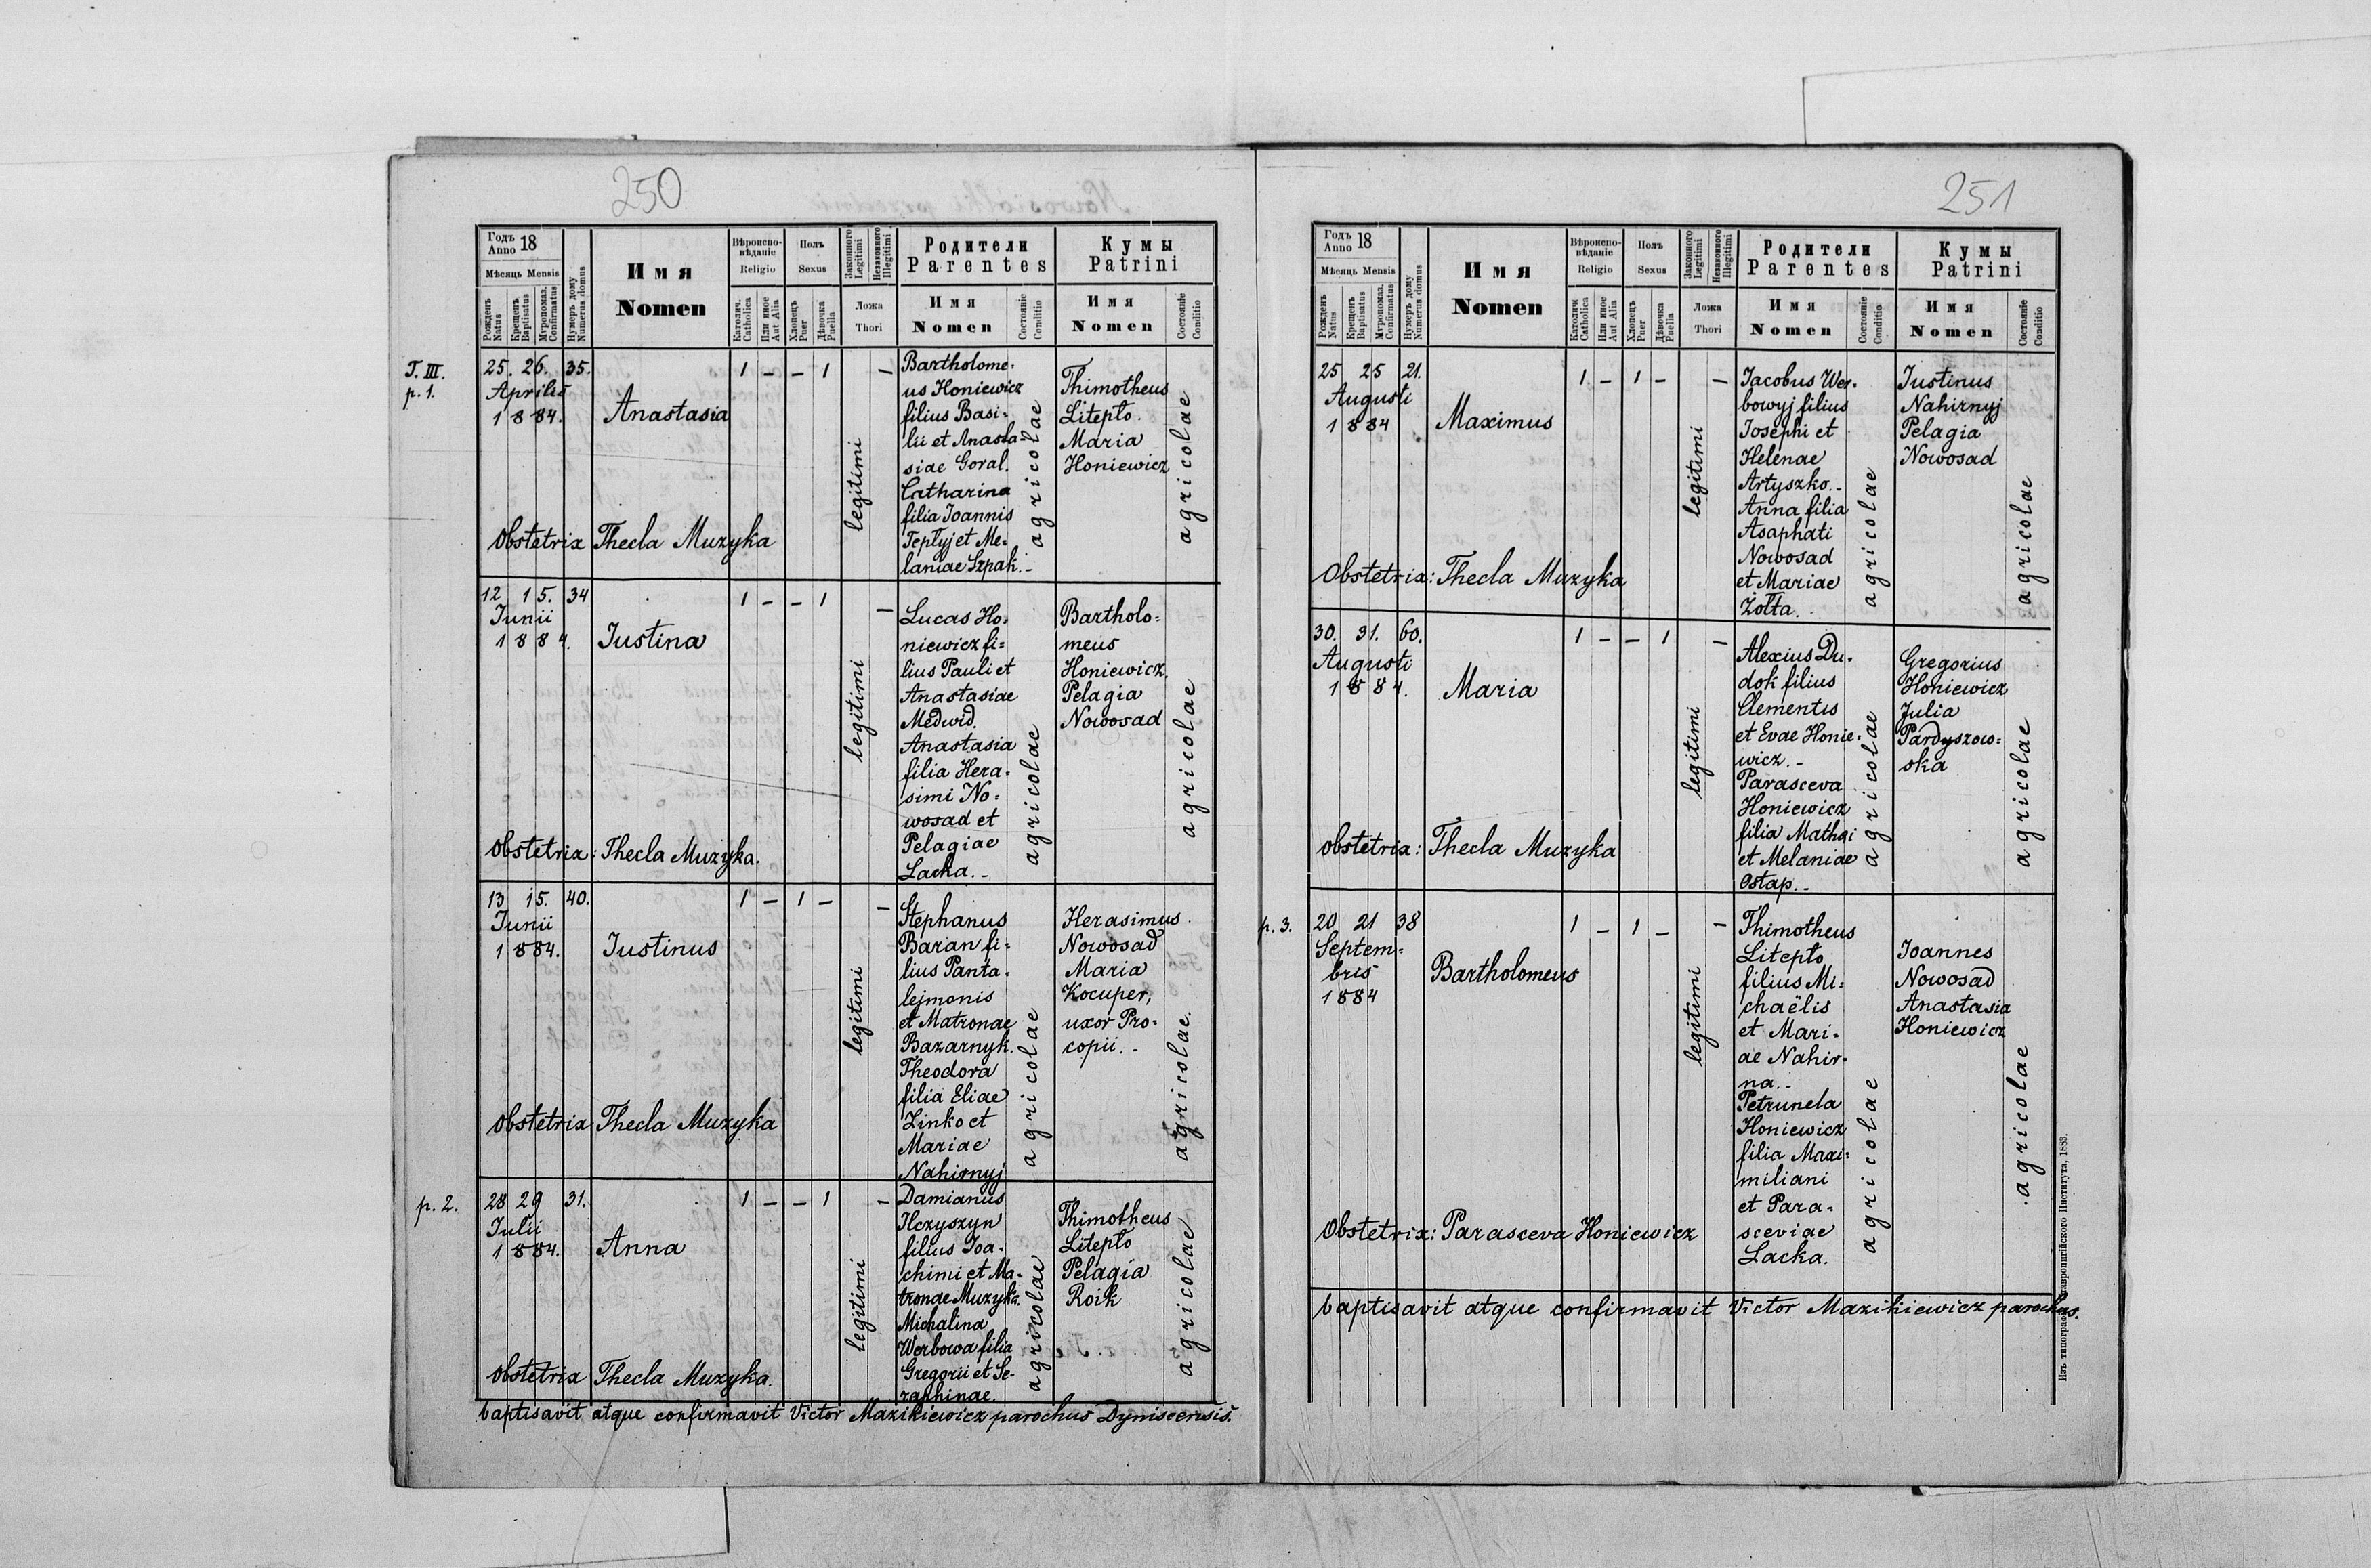 250
Годъ
Anno 18
Мѣсяць Mensis
Рожденъ
Natus
Крещенъ
Baptisatus
Мѵропомаз.
Confirmatus
Нумеръ дому
Numerus domus
Имя
Nomen
Вѣроиспо-
вѣданіе
Religio
Католич.
Catholica
Или иное
Aut Alia
Полъ
Sexus
Хлопець
Puer
Дѣвочка
Puella
Законного
Legitimi
Незаконного
Illegitimi
Ложа
Thori
Родители
Parentes
Имя
Nomen
Состояніе
Conditio
Кумы
Patrini
Имя
Nomen
Состояніе
Conditio
T. III.
p. 1.
25. 26. 35.
Aprilis
1884.
Anastasia
1 - - 1 -
legitimi
Bartholome-
us Honiewicz
filius Basi-
lii et Anasta
siae Goral.
Catharina
filia Joannis
Teptyj et Me-
laniae Szpak.-
agricolae
Thimotheus
Litepto.
Maria
Honiewicz
agricolae
Obstetrix Thecla Muzyka
12 15. 34
Junii
1884.
Justina
1 - - 1 -
legitimi
Lucas Ho-
niewicz fi-
lius Pauli et
Anastasiae
Medwid.
Anastasia
filia Hera-
simi No-
wosad et
Pelagiae
Lacka.-
agricolae
Bartholo-
meus
Honiewicz.
Pelagia
Nowosad
agricolae
Obstetrix: Thecla Muzyka.
13 15. 40.
Junii
1884.
Justinus
1 - 1 - -
legitimi
Stephanus
Baran fi-
lius Panta-
lejmonis
et Matronae
Bazarnyk.
Theodora
filia Eliae
Zinko et
Mariae
Nahirnyj
agricolae
Herasimus
Nowosad
Maria
Kocuper,
uxor Pro-
copii.-
agricolae.
Obstetrix Thecla Muzyka
p. 2.
28 29 31.
Julii
1884.
Anna
1 - - 1 -
legitimi
Damianus
Ilczyszyn
filius Joa-
chimi et Ma-
tronae Muzyka.
Michalina
Werbowa filia
Gregorii et Se-
raphinae.
agricolae
Thimotheus
Litepto
Pelagia
Roik
agricolae
Obstetrix Thecla Muzyka.
baptisavit atque confirmavit Victor Mazikiewicz parochus Dyniscensis.
251
Годъ
Anno 18
Мѣсяць Mensis
Рожденъ
Natus
Крещенъ
Baptisatus
Мѵропомаз.
Confirmatus
Нумеръ дому
Numerus domus
Имя
Nomen
Вѣроиспо-
вѣданіе
Religio
Католич
Catholica
Или иное
Aut Alia
Полъ
Sexus
Хлопець
Puer
Дѣвочка
Puella
Законного
Legitimi
Незаконного
Illegitimi
Ложа
Thori
Родители
Parentes
Имя
Nomen
Состояніе
Conditio
Кумы
Patrini
Имя
Nomen
Состояніе
Conditio
25 25 21.
Augusti
1884
Maximus
1 - 1 - -
legitimi
Jacobus Wer-
bowyj filius
Josephi et
Helenae
Artyszko.-
Anna filia
Asaphati
Nowosad
et Mariae
Zołta.
agricolae
Justinus
Nahirnyj
Pelagia
Nowosad
agricolae
Obstetrix: Thecla Muzyka
30. 31. 60.
Augusti
1884.
Maria
1 - - 1 -
legitimi
Alexius Du-
dok filius
Clementis
et Evae Honie-
wicz.-
Parasceva
Honiewicz
filia Mathei
et Melaniae
Ostap.-
agricolae
Gregorius
Honiewicz
Julia
Pardyszow-
ska
agricolae
Obstetrix: Thecla Muzyka
p. 3.
20 21 38
Septem-
bris
1884
Bartholomeus
1 - 1 - -
legitimi
Thimotheus
Litepto
filius Mi-
chaëlis
et Mari-
ae Nahir-
na.-
Petrunela
Honiewicz
filia Maxi-
miliani
et Para-
sceviae
Lacka.
agricolae
Joannes
Nowosad
Anastasia
Honiewicz
agricolae
Obstetrix: Parasceva Honiewicz
baptisavit atque confirmavit Victor Mazikiewicz parochus.
Института, 1883.